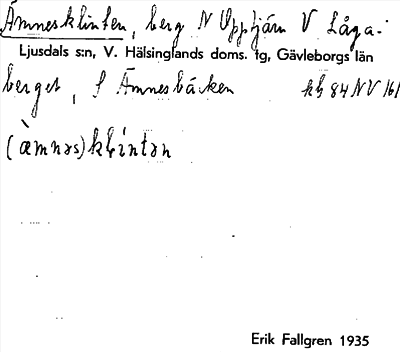 Ämnesklinten, berg N Upptjärn V Låga-
Ljusdals s:n, V. Hälsinglands doms. tg, Gävleborgs län
berget, S Ämnesbäcken kb 84 NV 161
(æ̀mnəs)kḷíntən
Erik Fallgren 1935